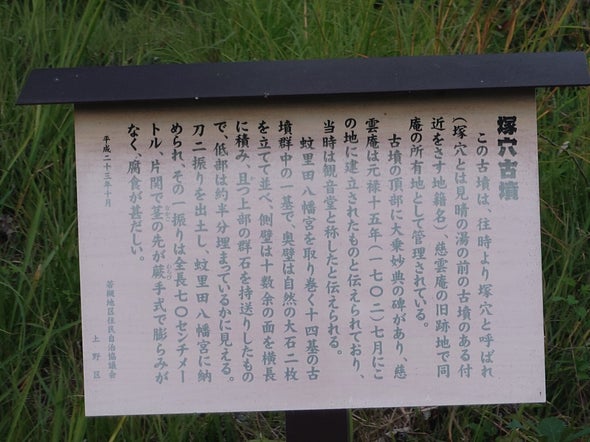 塚穴古墳
この古墳は、往時より塚穴と呼ばれ
(塚穴とは見晴の湯の前の古墳のある付
近をさす地籍名)、慈雲庵の旧跡地で同
庵の所有地として管理されている。
古墳の頂部に大乗妙典の碑があり、慈
雲庵は元禄十五年(一七〇二)七月にこ
の地に建立されたものと伝えられており、
当時は観音堂と称したと伝えられる。
蚊里田八幡宮を取り巻く十四基の古
墳群中の一基で、奥壁は自然の大石二枚
を立てて並べ、側壁は十数余の面を横長
に積み、且つ上部の群石を持送りしたもの
で、低部は約半分埋まっているかに見える。
刀二振りを出土し、蚊里田八幡宮に納
められ、その一振りは全長七〇センチメー
トル、片関で茎の先が蕨手式で膨らみが
なく、腐食が甚だしい。
平成二十三年十月
若槻地区住民自治協議会
上野区